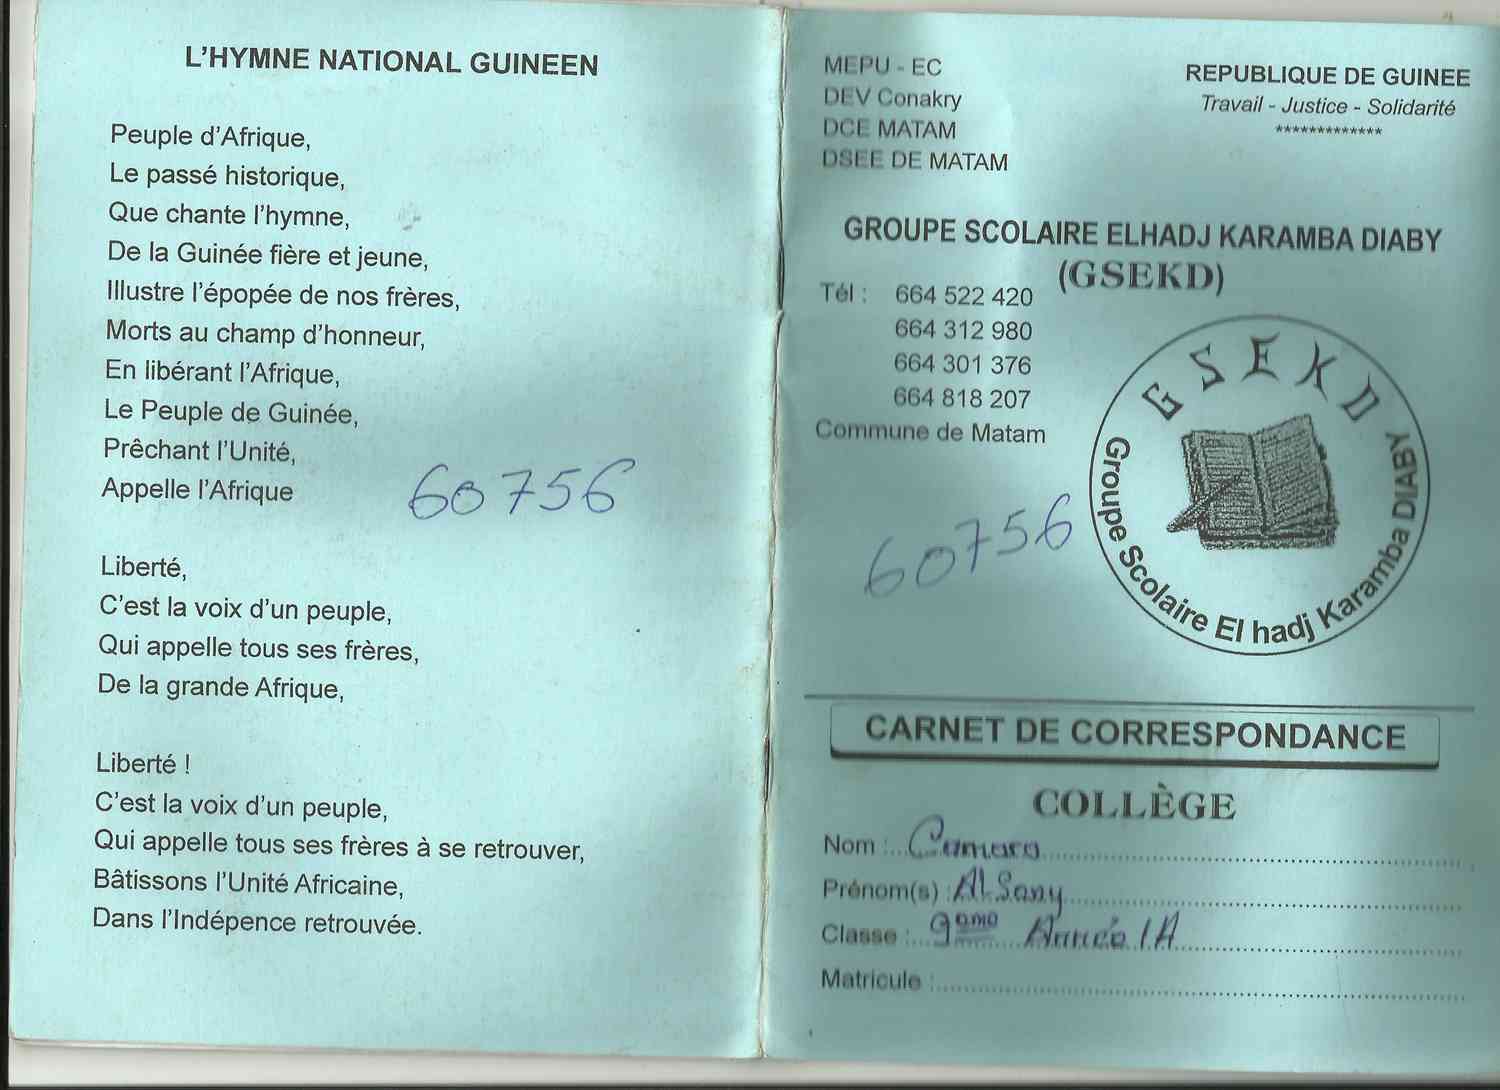 L'HYMNE NATIONAL GUINEEN
Peuple d'Afrique,
Le passé historique,
Que chante l'hymne,
De la Guinée fière et jeune,
Illustre l'épopée de nos frères,
Morts au champ d'honneur,
En libérant l'Afrique,
Le Peuple de Guinée,
Prêchant l'Unité,
Appelle l'Afrique
60756
Liberté,
C'est la voix d'un peuple,
Qui appelle tous ses frères,
De la grande Afrique,
Liberté !
C'est la voix d'un peuple,
Qui appelle tous ses frères à se retrouver,
Bâtissons l'Unité Africaine,
Dans l'Indépence retrouvée.
MEPU - EC
DEV Conakry
DCE MATAM
DSEE DE MATAM
REPUBLIQUE DE GUINEE
Travail - Justice - Solidarité
*************
GROUPE SCOLAIRE ELHADJ KARAMBA DIABY
(GSEKD)
Tél : 664 522 420
664 312 980
664 301 376
664 818 207
Commune de Matam
60756
GSEKD
Groupe Scolaire El hadj Karamba DIABY
CARNET DE CORRESPONDANCE
COLLÈGE
Nom : Camara
Prénom(s) : Al Sany
Classe : 9eme Année 1A
Matricule :